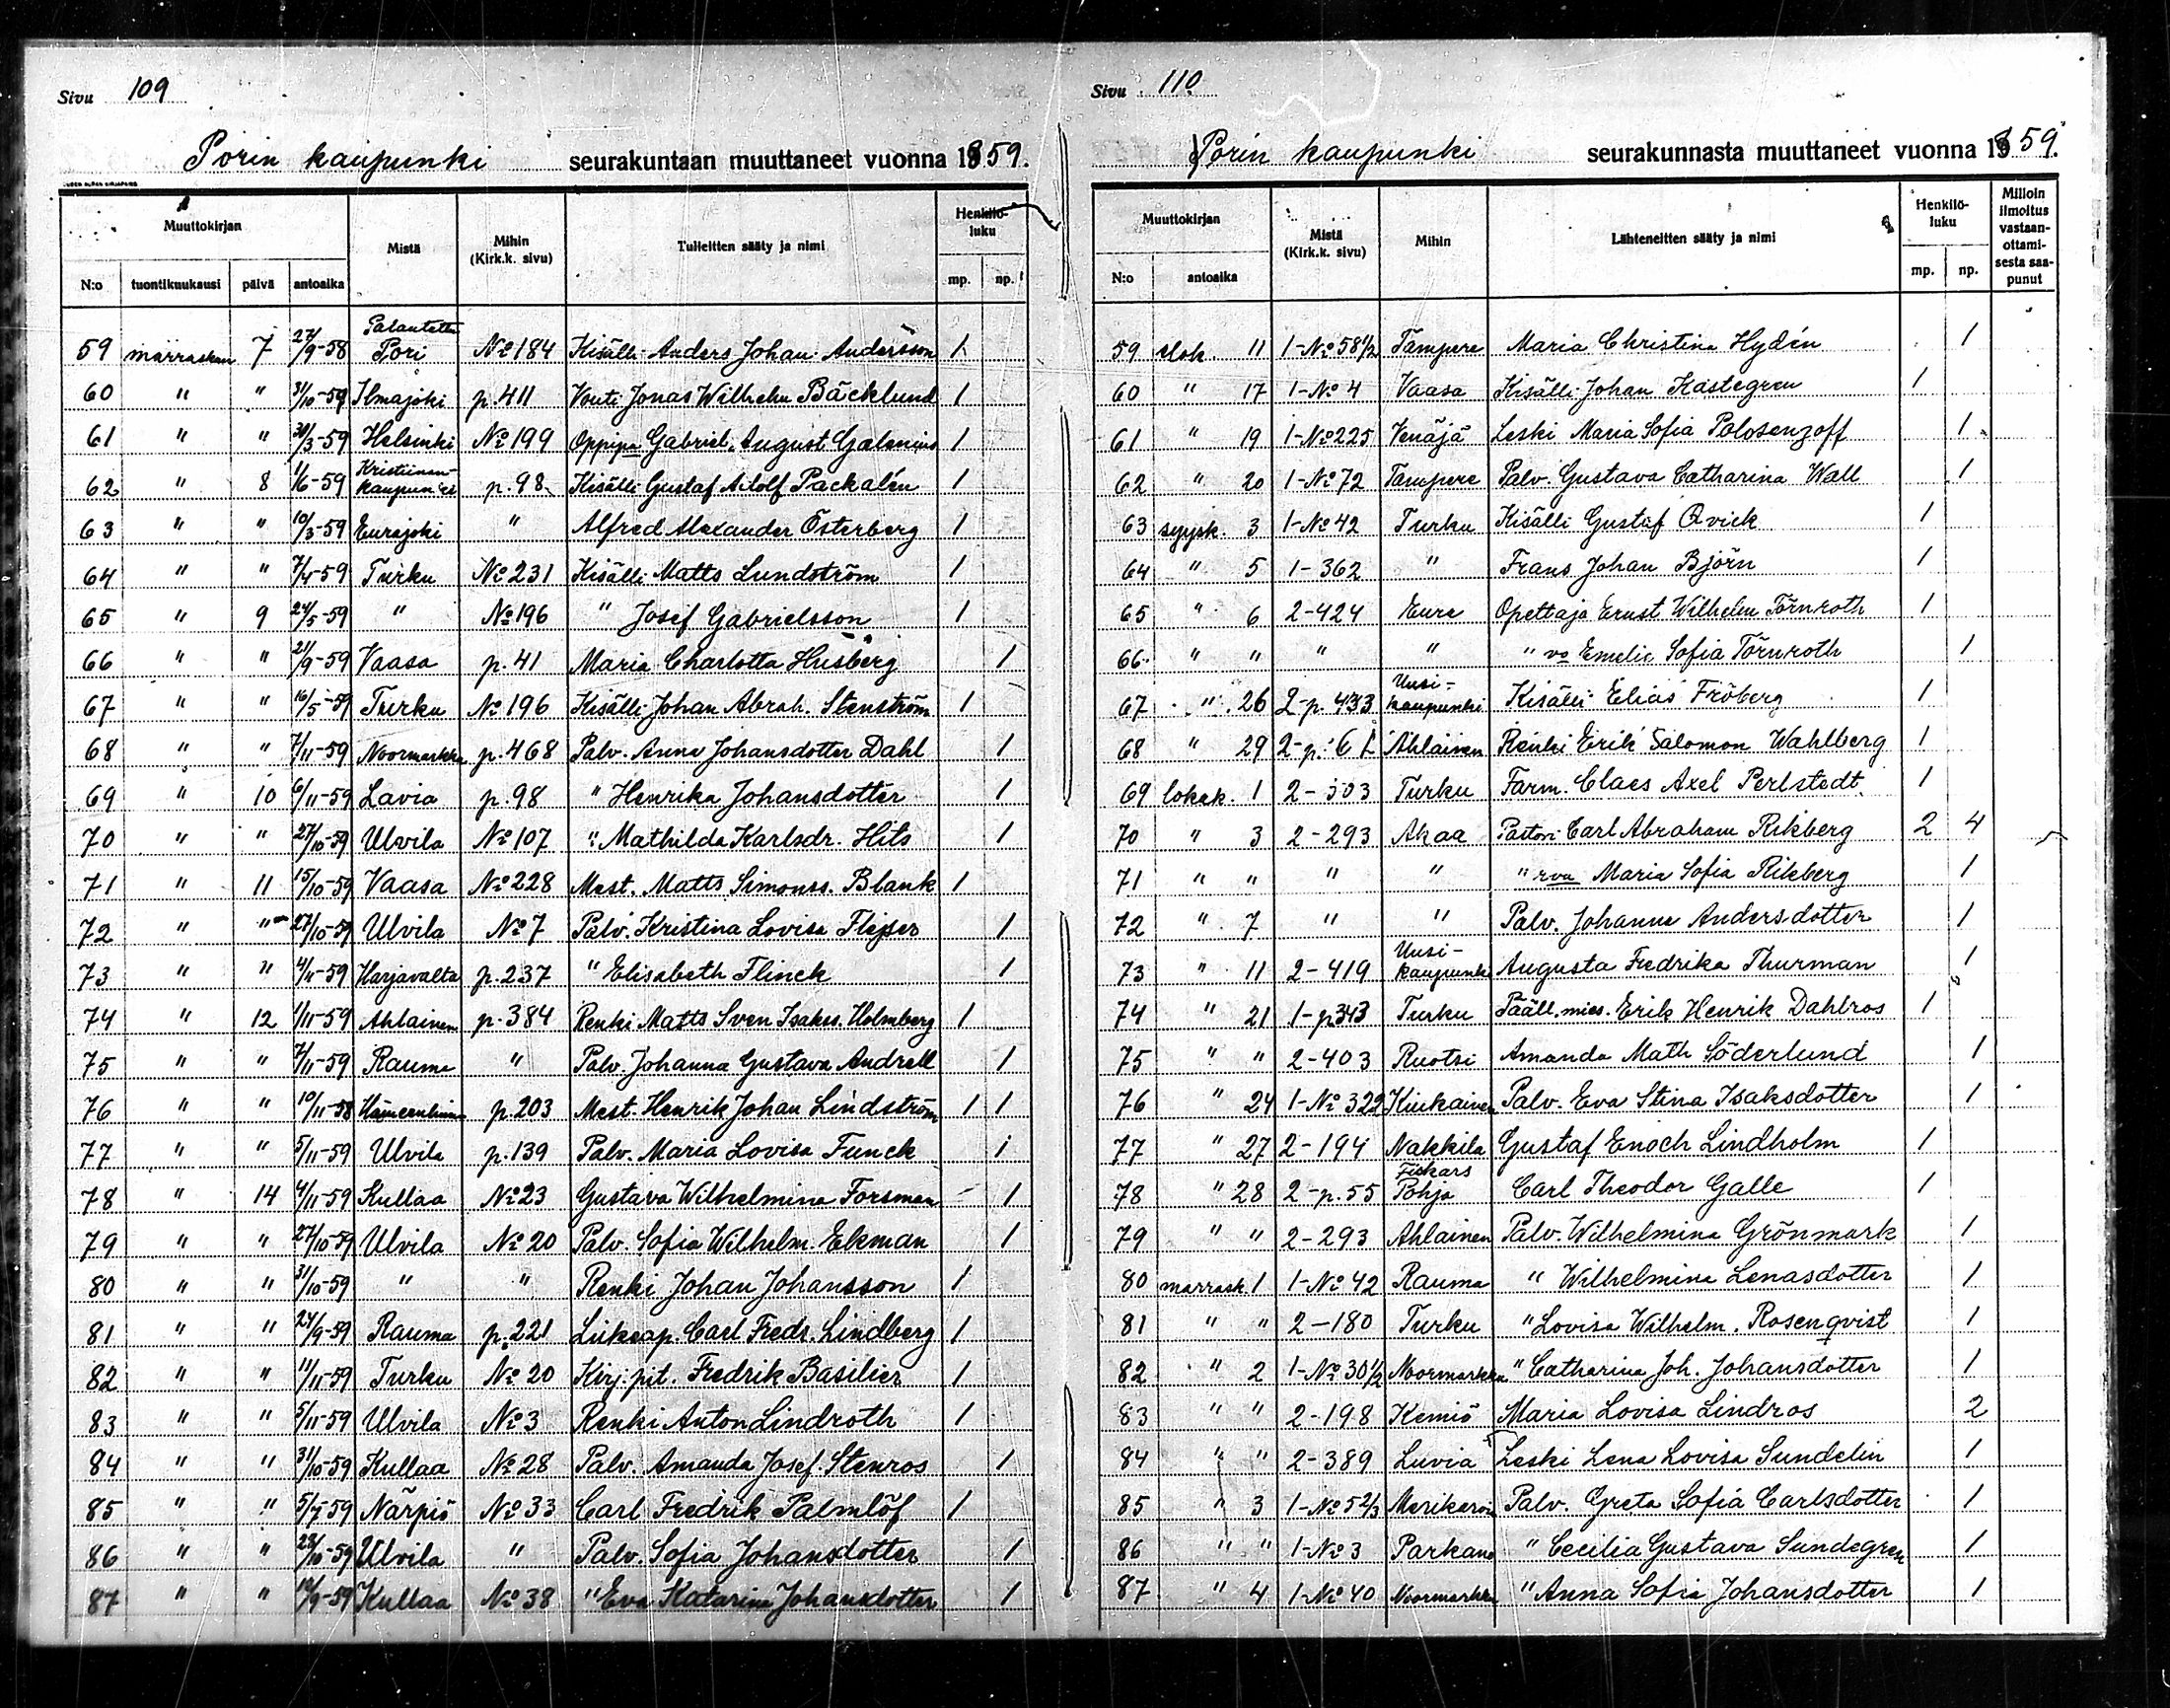 Sivu 109
Porin kaupunki seurakuntaan muuttaneet vuonna 1859.
Muuttokirjan Mistä Mihin (Kirk.k. sivu) Tulleitten sääty ja nimi Henkilö-luku
N:o tuontikuukausi päivä antoaika mp. np.
59 marraskuu 7 27/9-58 Palautettu Pori No 184 Kisälli Anders Johan Andersson 1
60 " " 31/10-59 Ilmajoki p.411 Vouti Jonas Wilhelm Bäcklund 1
61 " " 30/3-59 Helsinki No 199 Oppipa Gabriel August Galenius 1
62 " 8 1/6-59 Kristiinan-kaupunki p.98 Kisälli Gustaf Adolf Packalén 1
63 " " 10/3-59 Eurajoki " Alfred Alexander Österberg 1
64 " " 7/4-59 Turku No 231 Kisälli Matts Lundström 1
65 " 9 24/5-59 " No 196 " Josef Gabrielsson 1
66 " " 21/9-59 Vaasa p.41 Maria Charlotta Husberg 1
67 " " 16/5-59 Turku No 196 Kisälli Johan Abrah. Stenström 1
68 " " 7/11-59 Noormarkku p.468 Palv. Anna Johansdotter Dahl 1
69 " 10 6/11-59 Lavia p.98 " Henrika Johansdotter 1
70 " " 27/10-59 Ulvila No 107 " Mathilda Karlsdr. Hits 1
71 " 11 15/10-59 Vaasa No 228 Mest. Matts Simonss. Blank 1
72 " " 27/10-59 Ulvila No 7 Palv. Kristina Lovisa 1
73 " " 4/11-59 Harjavalta p.237 " Elisabeth Flinck 1
74 " 12 1/11-59 Ahlainen p.384 Renki Matts Sven Isakss. Holmberg 1
75 " " 7/11-59 Rauma " Palv. Johanna Gustava Andrell 1
76 " " 10/11-58 Hämeenlinna p.203 Mest. Henrik Johan Lindström 1 1
77 " " 5/11-59 Ulvila p.139 Palv. Maria Lovisa Funck 1
78 " 14 4/11-59 Kullaa No 23 Gustava Wilhelmina Forsman 1
79 " " 27/10-59 Ulvila No 20 Palv. Sofia Wilhelm. Ekman 1
80 " " 31/10-59 " " Renki Johan Johansson 1
81 " " 24/9-59 Rauma p.221 Liikeap. Carl Fredr. Lindberg 1
82 " " 11/11-59 Turku No 20 Kirj.pit. Fredrik Basilier 1
83 " " 5/11-59 Ulvila No 3 Renki Anton Lindroth 1
84 " " 31/10-59 Kullaa No 28 Palv. Amanda Josef. Stenros 1
85 " " 5/7-59 Närpiö No 33 Carl Fredrik Palmlöf 1
86 " " 28/10-59 Ulvila " Palv. Sofia Johansdotter 1
87 " " Kullaa No 38 " Eva Katarina Johansdotter 1
Sivu 110
Porin kaupunki seurakunnasta muuttaneet vuonna 1859.
Muuttokirjan Mistä (Kirk.k. sivu) Mihin Lähteneitten sääty ja nimi Henkilö-luku Milloin ilmoitus vastaan-ottami-sesta saa-punut
N:o antoaika mp. np.
59 elok. 11 1-No 58 1/2 Tampere Maria Christina Hydén 1
60 " 17 1-No 4 Vaasa Kisälli Johan Kastegren 1
61 " 19 1-No 225 Venäjä Leski Maria Sofia Polosenzoff 1
62 " 20 1-No 72 Tampere Palv. Gustava Catharina Wall 1
63 syysk. 3 1-No 42 Turku Kisälli Gustaf Qvick 1
64 " 5 1-362 " Frans Johan Björn 1
65 " 6 2-424 Eura Opettaja Ernst Wilhelm Törnroth 1
66 " " " " " va Emelie Sofia Törnroth 1
67 " 26 2-p.433 Uusi-kaupunki Kisälli Elias Fröberg 1
68 " 29 Ahlainen Renki Erik Salomon Wahlberg 1
69 lokak. 1 2-503 Turku Farm. Claes Axel Perlstedt 1
70 " 3 2-293 Akaa Pastori Carl Abraham Rikberg 2 4
71 " " " " " rva Maria Sofia Rikberg 1
72 " 7 " " Palv. Johanna Andersdotter 1
73 " 11 2-419 Uusi-kaupunki Augusta Fredrika Thurman 1
74 " 21 1-p343 Turku Pääll.mies. Erik Henrik Dahlros 1
75 " " 2-403 Ruotsi Amanda Math Söderlund 1
76 " 24 1-No 322 Kiukainen Palv. Eva Stina Isaksdotter 1
77 " 27 2-194 Nakkila Gustaf Enoch Lindholm 1
78 " 28 2-p.55 Fiskars Pohja Carl Theodor Galle 1
79 " " 2-293 Ahlainen Palv. Wilhelmina Grönmark 1
80 marrask. 1 1-No 42 Rauma " Wilhelmina Lenasdotter 1
81 " " 2-180 Turku " Lovisa Wilhelm. Rosenqvist 1
82 " 2 1-No 30 1/2 Noormarkku " Catharina Joh. Johansdotter 1
83 " " 2-198 Kemiö Maria Lovisa Lindros 2
84 " " 2-389 Luvia Leski Lena Lovisa Sundelin 1
85 " 3 1-No 52/3 Merikarvia Palv. Greta Sofia Carlsdotter 1
86 " " 1-No 3 Parkano " Cecilia Gustava Sundegren 1
87 " 4 1-No 40 Noormarkku " Anna Sofia Johansdotter 1